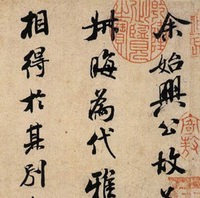 余始興公故
叔晦為代雅
相得於其別